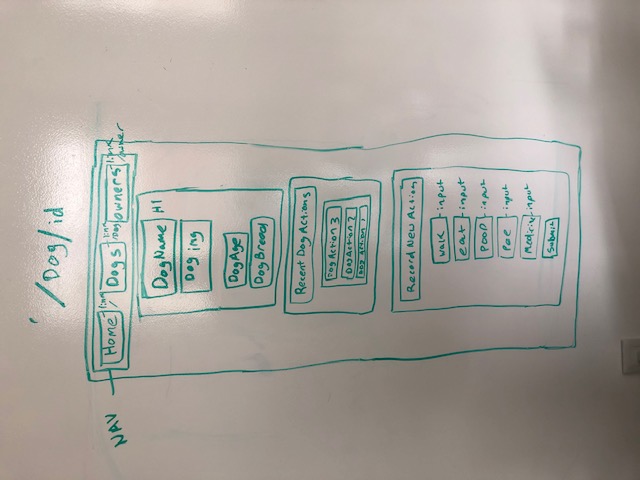 /Dog/id
NAV Home link / Dogs link /Dog owners link /owner
DogName H1
Dog img
DogAge
DogBreed
Recent Dog Actions
DogAction 3
DogAction 2
Dog Action 1
Record New Action
walk - input
eat - input
poop - input
Pee - input
Medicine - input
submit